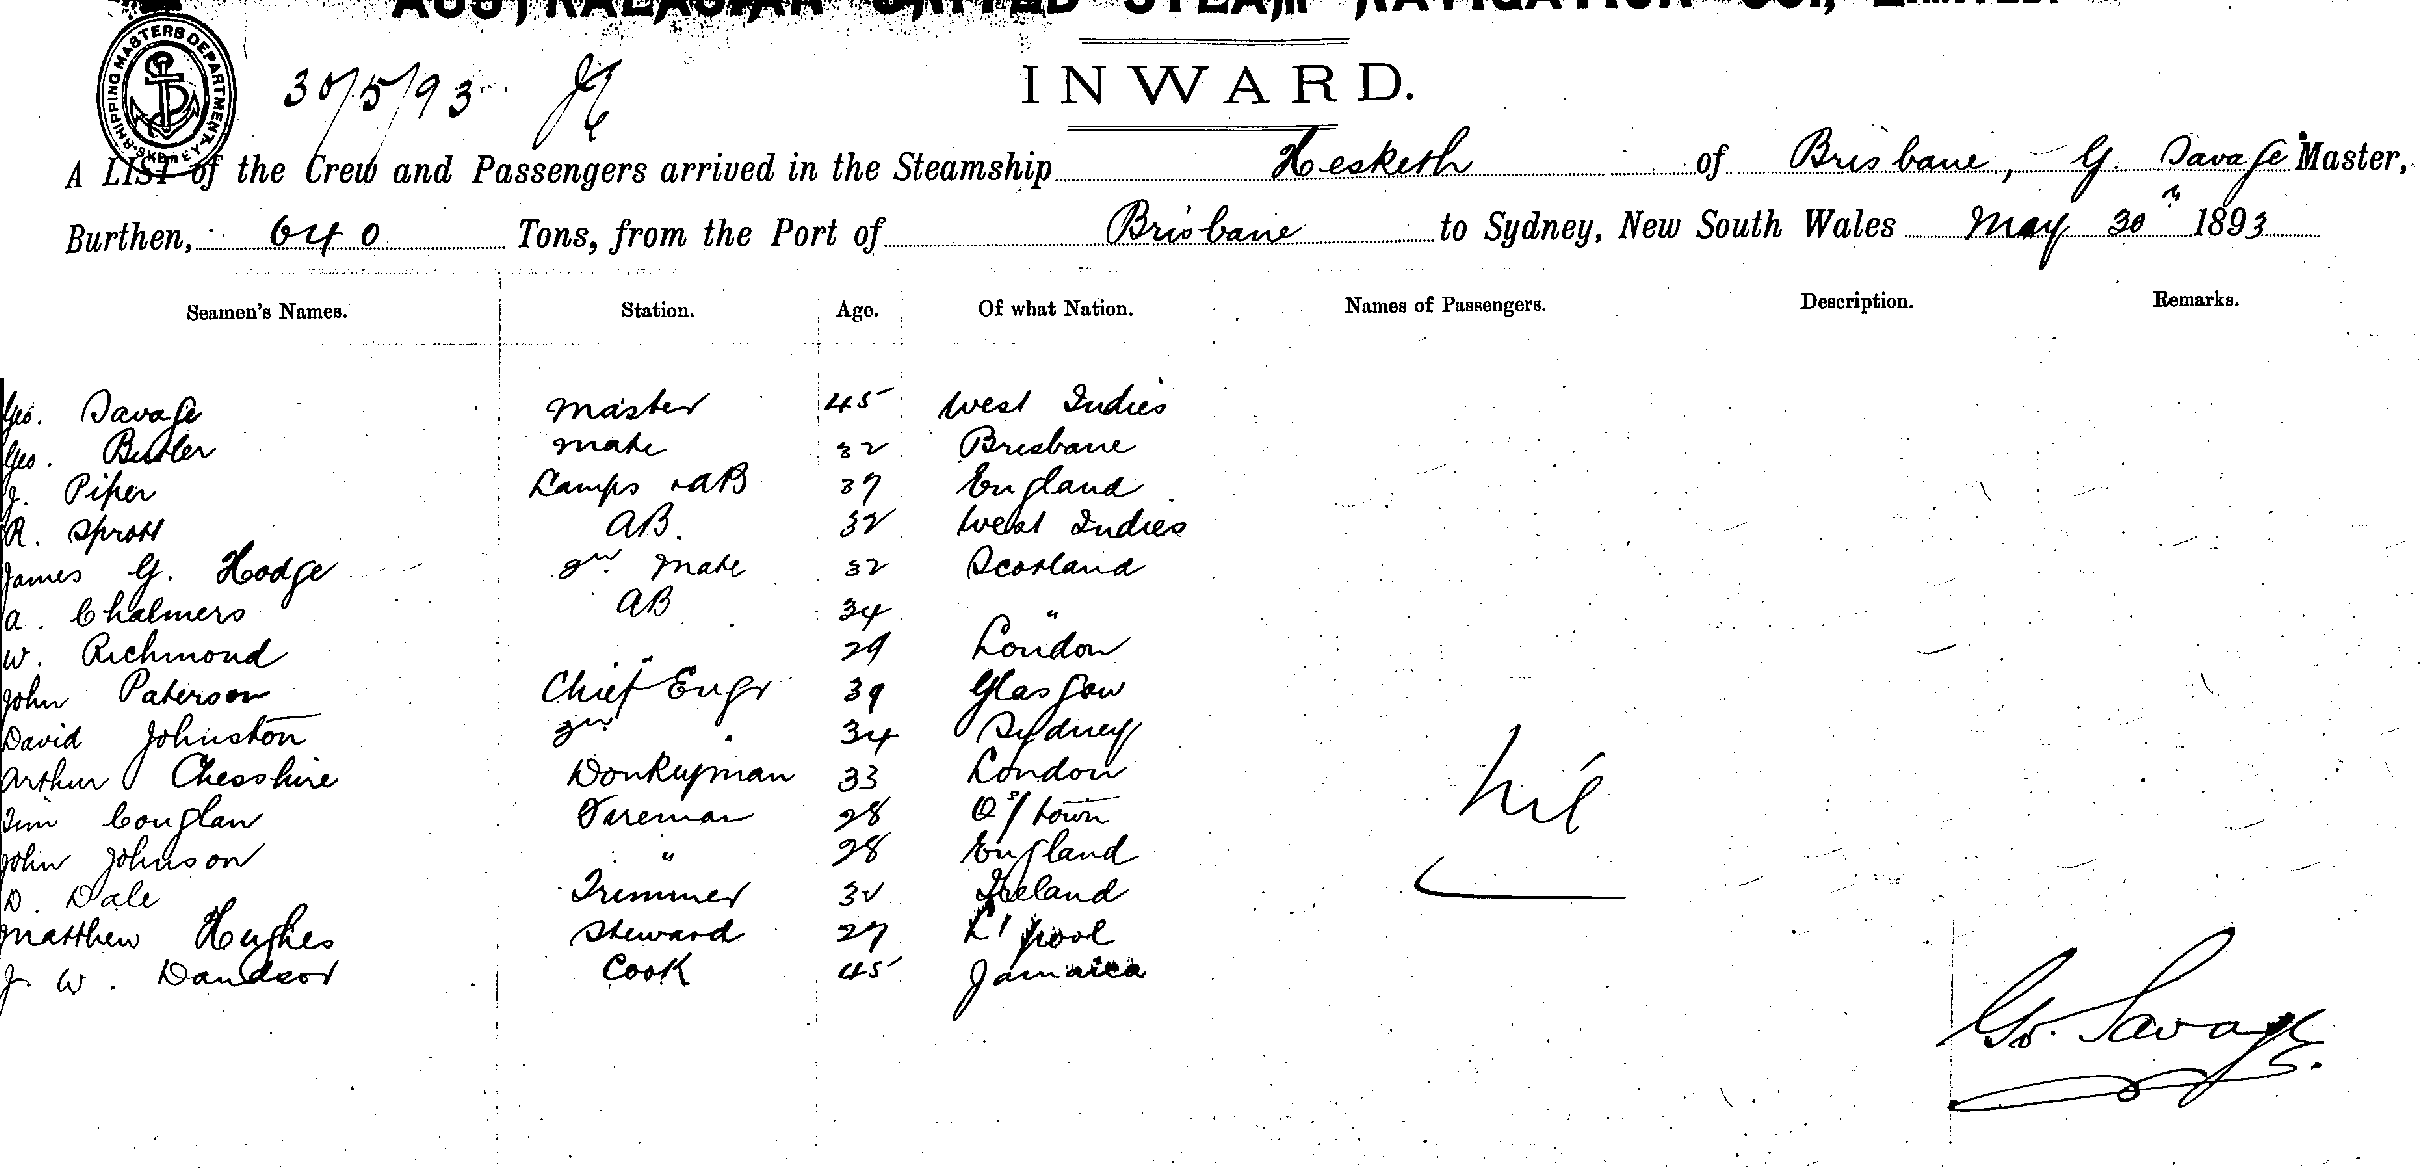 AUSTRALASIAN UNITED STEAM NAVIGATION CO., LIMITED.
SHIPPING MASTERS DEPARTMENT SYDNEY
30/5/93
INWARD.
A LIST of the Crew and Passengers arrived in the Steamship Hesketh of Brisbane, G. Savage Master,
Burthen, 640 Tons, from the Port of Brisbane to Sydney, New South Wales May 30th 1893
Seamen's Names. Station. Age. Of what Nation. Names of Passengers. Description. Remarks.
Geo. Savage Master 45 West Indies
Geo. Butler Mate 32 Brisbane
J. Piper Lamps & AB 37 England
R. Sprott AB. 32 West Indies
James G. Hodge 2nd Mate 32 Scotland
A. Chalmers AB 34 "
W. Richmond " 29 London
John Paterson Chief Engr 39 Glasgow
David Johnston 2nd " 34 Sydney
Arthur Chesshire Donkeyman 33 London
Tim Couglan Fireman 28 Q's/town
John Johnson " 28 England
D. Dale Trimmer 32 Ireland
Matthew Hughes Steward 27 L'pool
J. W. Davidson Cook 45 Jamaica
Nil
Geo. Savage